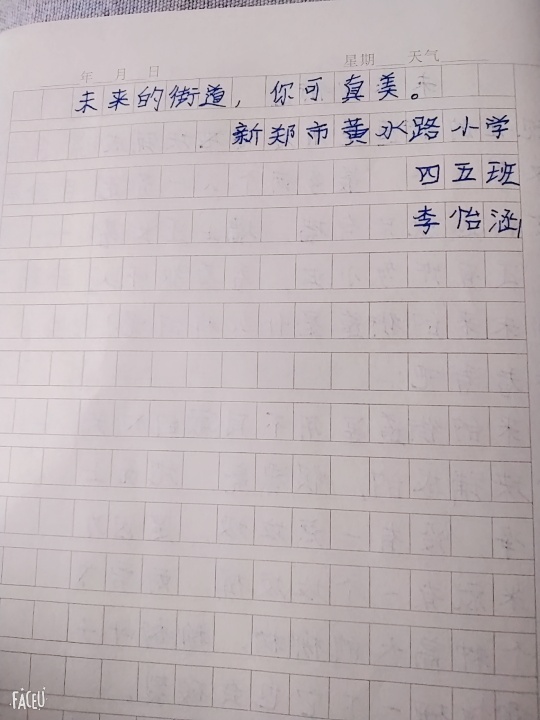 年 月 日 星期 天气
未来的街道，你可真美。
新郑市黄水路小学
四五班
李怡涵
FACEU